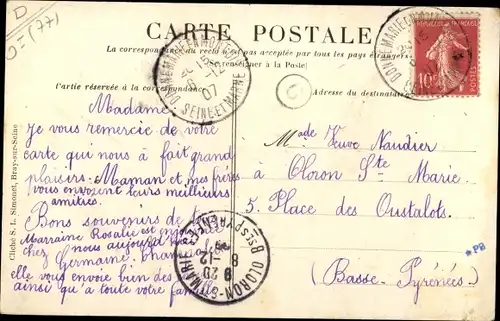 D
D=(77)
CARTE POSTALE
La correspondance au recto n'est pas acceptée par tous les pays étrangers
(Se renseigner à la Poste)
Partie réservée à la correspondance
Adresse du destinataire
DONNEMARIE-EN-MONTOIS
SEINE ET MARNE
07
10c
Madame,
Je vous remercie de votre
carte qui nous à fait grand
plaisirs. Maman et mes frères
vous envoyent leurs meilleurs
amitiés.
Bons souvenirs de la
Marraine Rosalie est
nous aujourd'hui
chez Germaine
elle vous envoie bien des
ainsi qu'a toute votre famille
OLORON-STE-MARIE
BSES PYRÉNÉES
8 -12
Made Veuve Naudier
à Oloron Ste Marie
5. Place des Oustalots.
(Basse-Pyrénées)
*PB
Cliché S. L. Simonet, Bray-sur-Seine